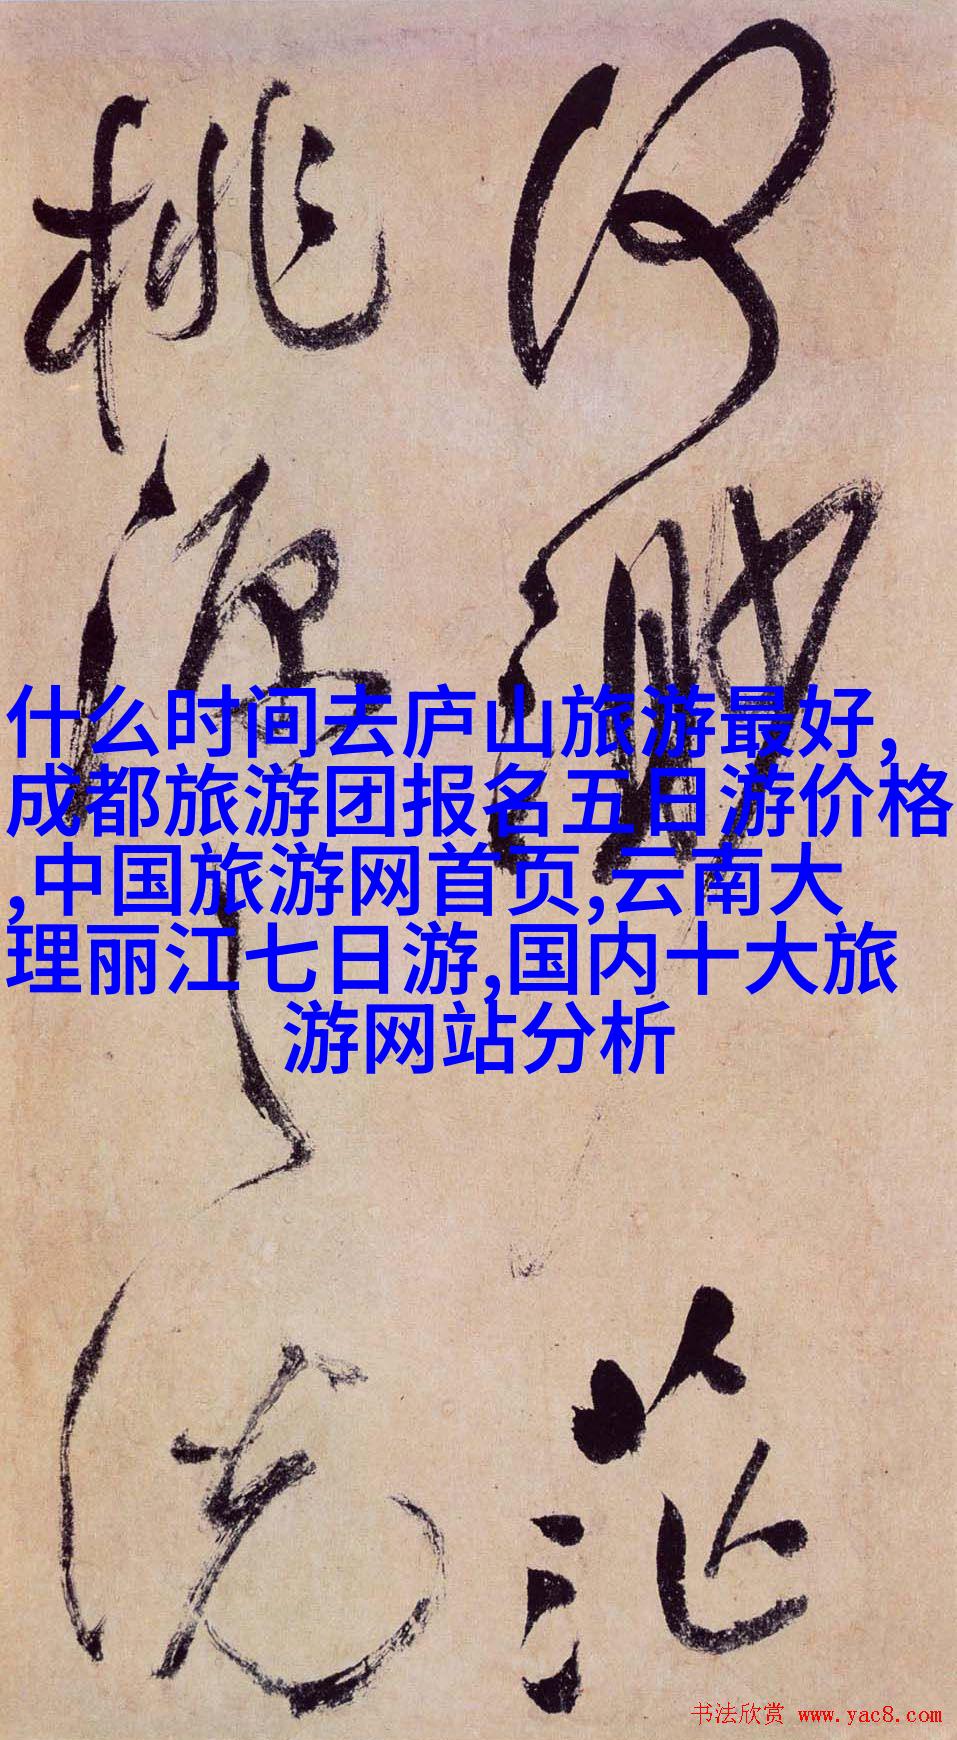 何渺
茫
桃源之
说
什么时间去庐山旅游最好,
成都旅游团报名五日游价格
,中国旅游网首页,云南大
理丽江七日游,国内十大旅
游网站分析
书法欣赏 www.yac8.com